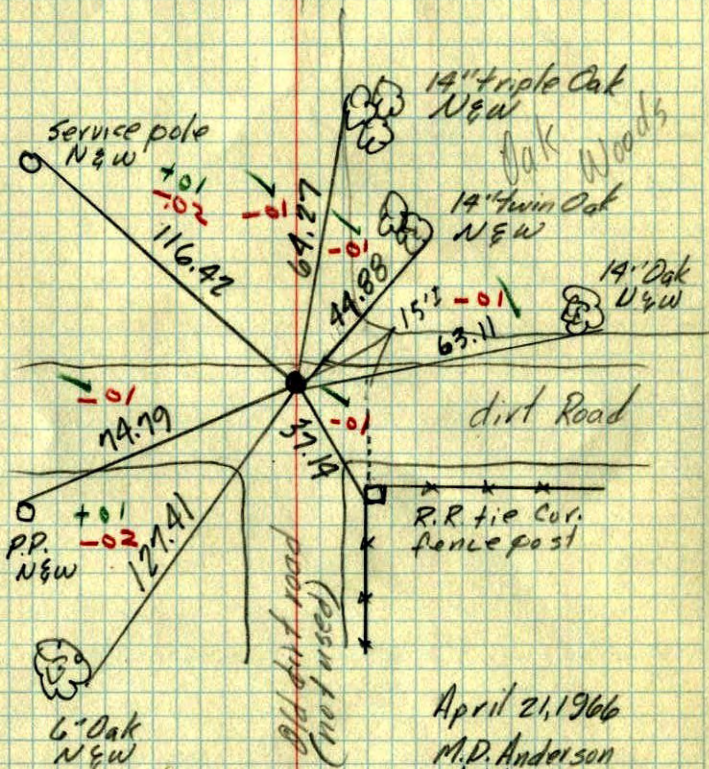 14" triple Oak
N&W
Oak Woods
service pole
N&W
+01
-02
-01
64.27
14" twin Oak
N&W
116.42
-01
44.88
14" Oak
N&W
15'±
-01
63.11
-01
74.79
-01
37.14
dirt Road
P.P.
N&W
+01
-02
127.41
R.R. tie Cor.
fence post
Old dirt road
(not used)
6" Oak
N&W
April 21, 1966
M.D. Anderson